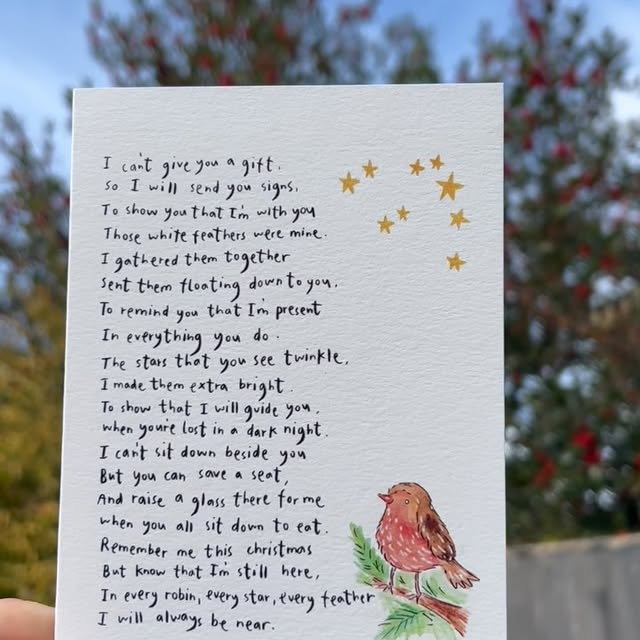 I can't give you a gift.
so I will send you signs,
To show you that I'm with you
Those white feathers were mine.
I gathered them together
Sent them floating down to you.
To remind you that I'm present
In everything you do.
The stars that you see twinkle,
I made them extra bright.
To show that I will guide you.
when you're lost in a dark night.
I can't sit down beside you
But you can save a seat,
And raise a glass there for me
when you all sit down to eat.
Remember me this christmas
But know that I'm still here,
In every robin, every star, every feather
I will always be near.